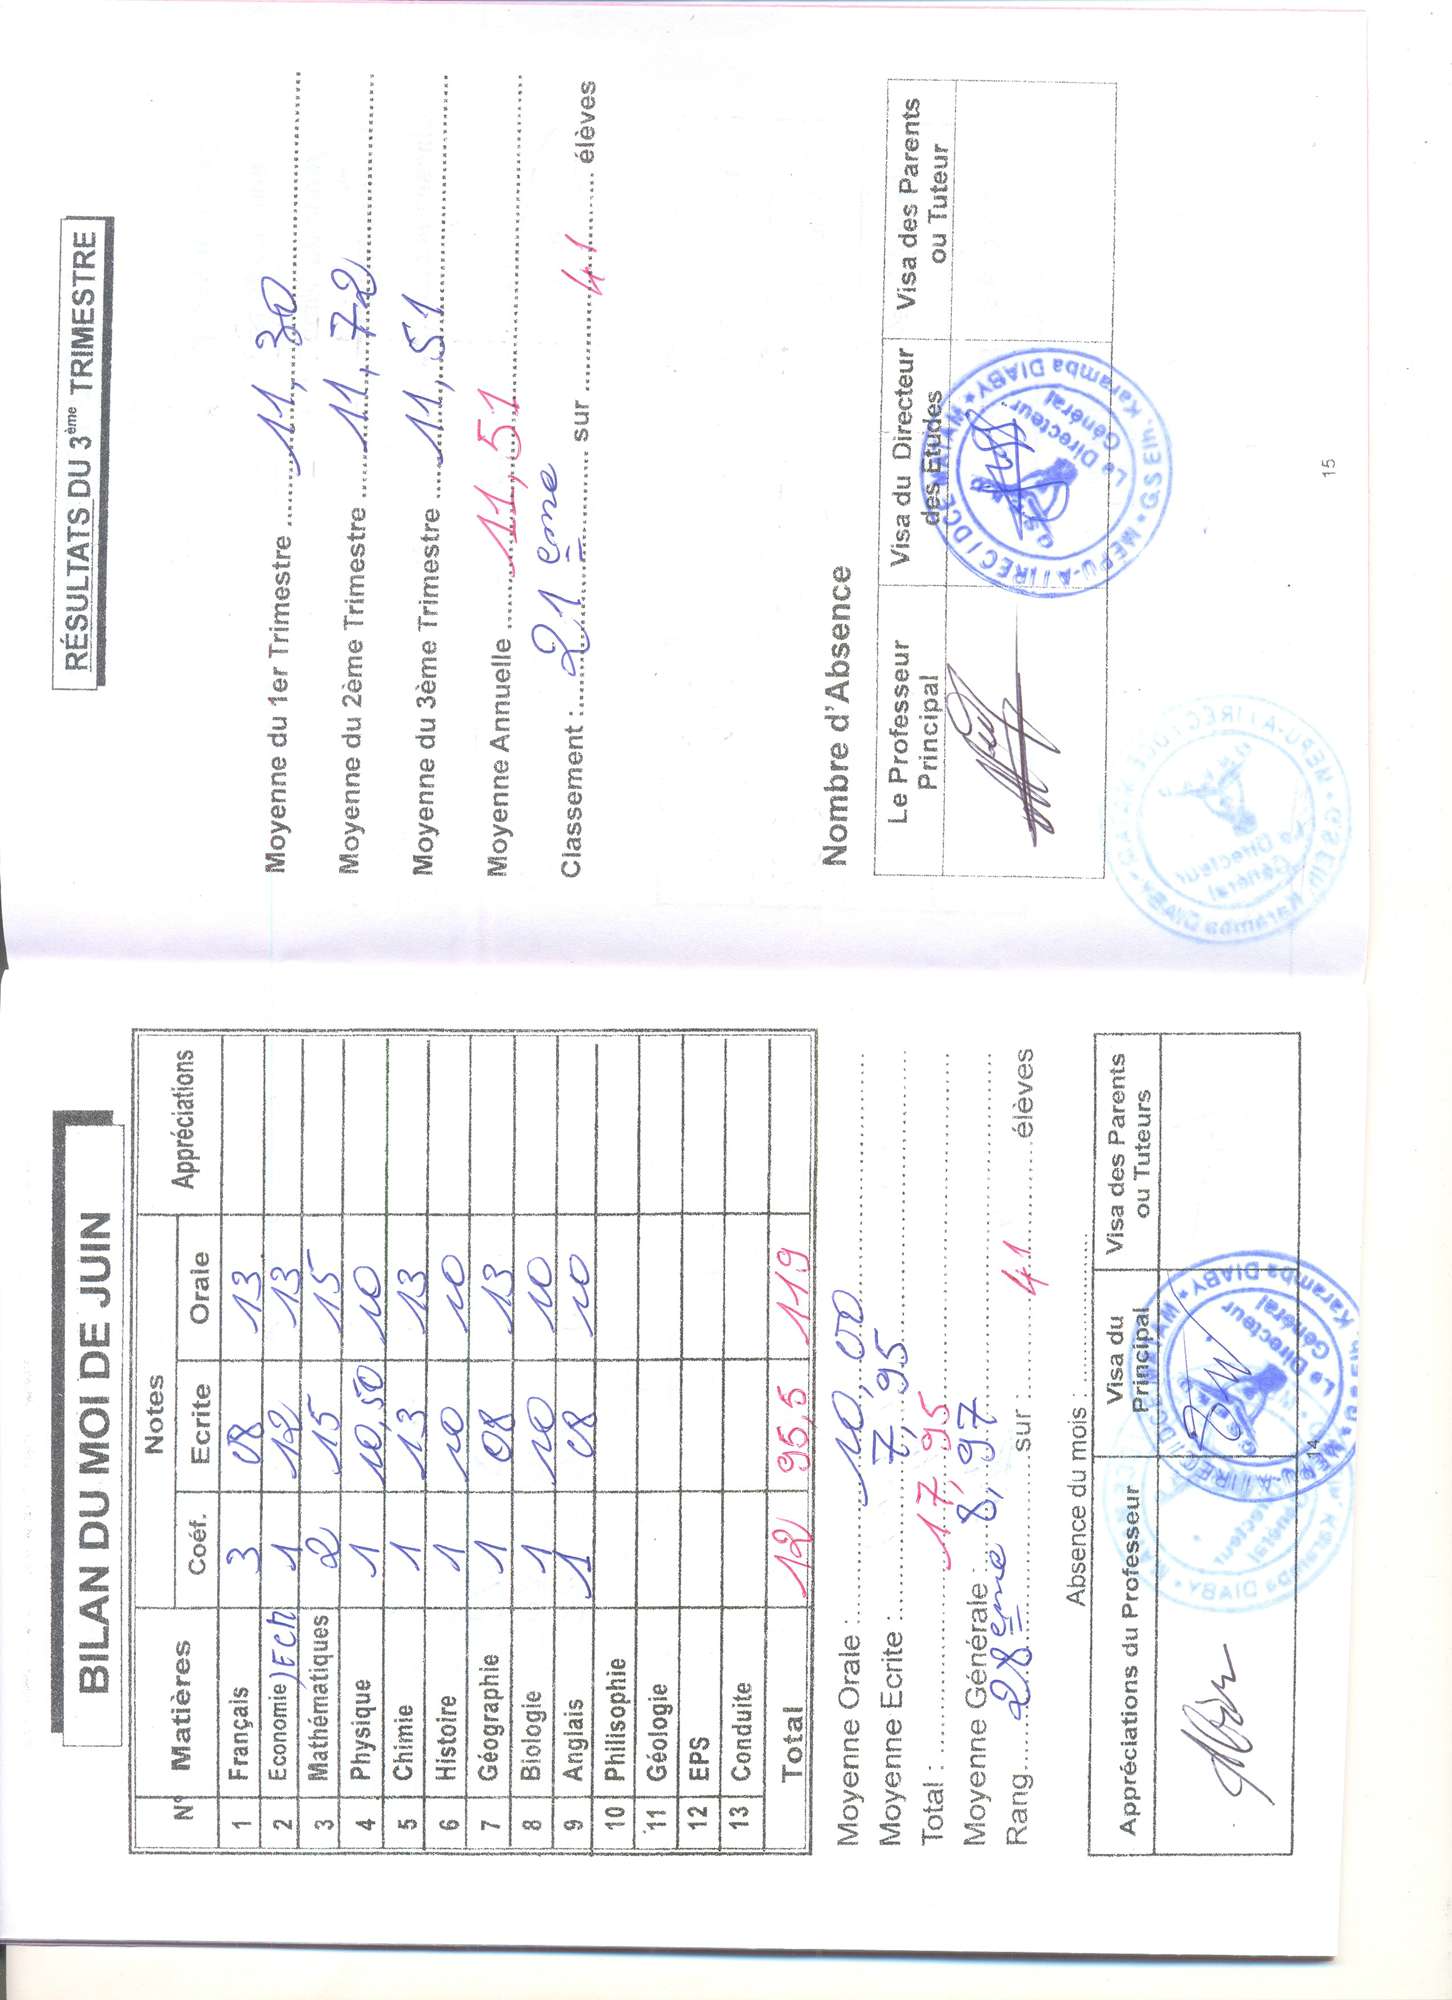 BILAN DU MOI DE JUIN
N° Matières Notes Appréciations
Coéf. Ecrite Orale
1 Français 3 08 13
2 Economie/ECM 1 12 13
3 Mathématiques 2 15 15
4 Physique 1 10,50 10
5 Chimie 1 13 13
6 Histoire 1 10 10
7 Géographie 1 08 13
8 Biologie 1 10 10
9 Anglais 1 08 10
10 Philisophie
11 Géologie
12 EPS
13 Conduite
Total 12 95,5 119
Moyenne Orale : 10,00
Moyenne Ecrite : 7,95
Total : 17,95
Moyenne Générale : 8,97
Rang 28ème sur : 41 élèves
Absence du mois :
Appréciations du Professeur Visa du Principal Visa des Parents ou Tuteurs
Le Directeur Général
14
RÉSULTATS DU 3ème TRIMESTRE
Moyenne du 1er Trimestre 11,30
Moyenne du 2ème Trimestre 11,72
Moyenne du 3ème Trimestre 11,51
Moyenne Annuelle 11,51
Classement : 21ème sur 41 élèves
Nombre d'Absence
Le Professeur Principal Visa du Directeur des Etudes Visa des Parents ou Tuteur
MEPU-A/IREC/DCE MATAM * GS Elh. Karamba DIABY *
Le Directeur Général
Le Directeur Général
15